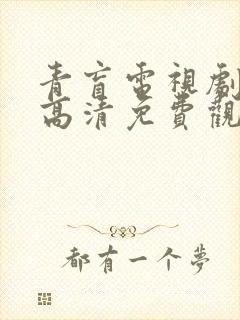 青盲電視劇
高清免費觀
都有一个夢